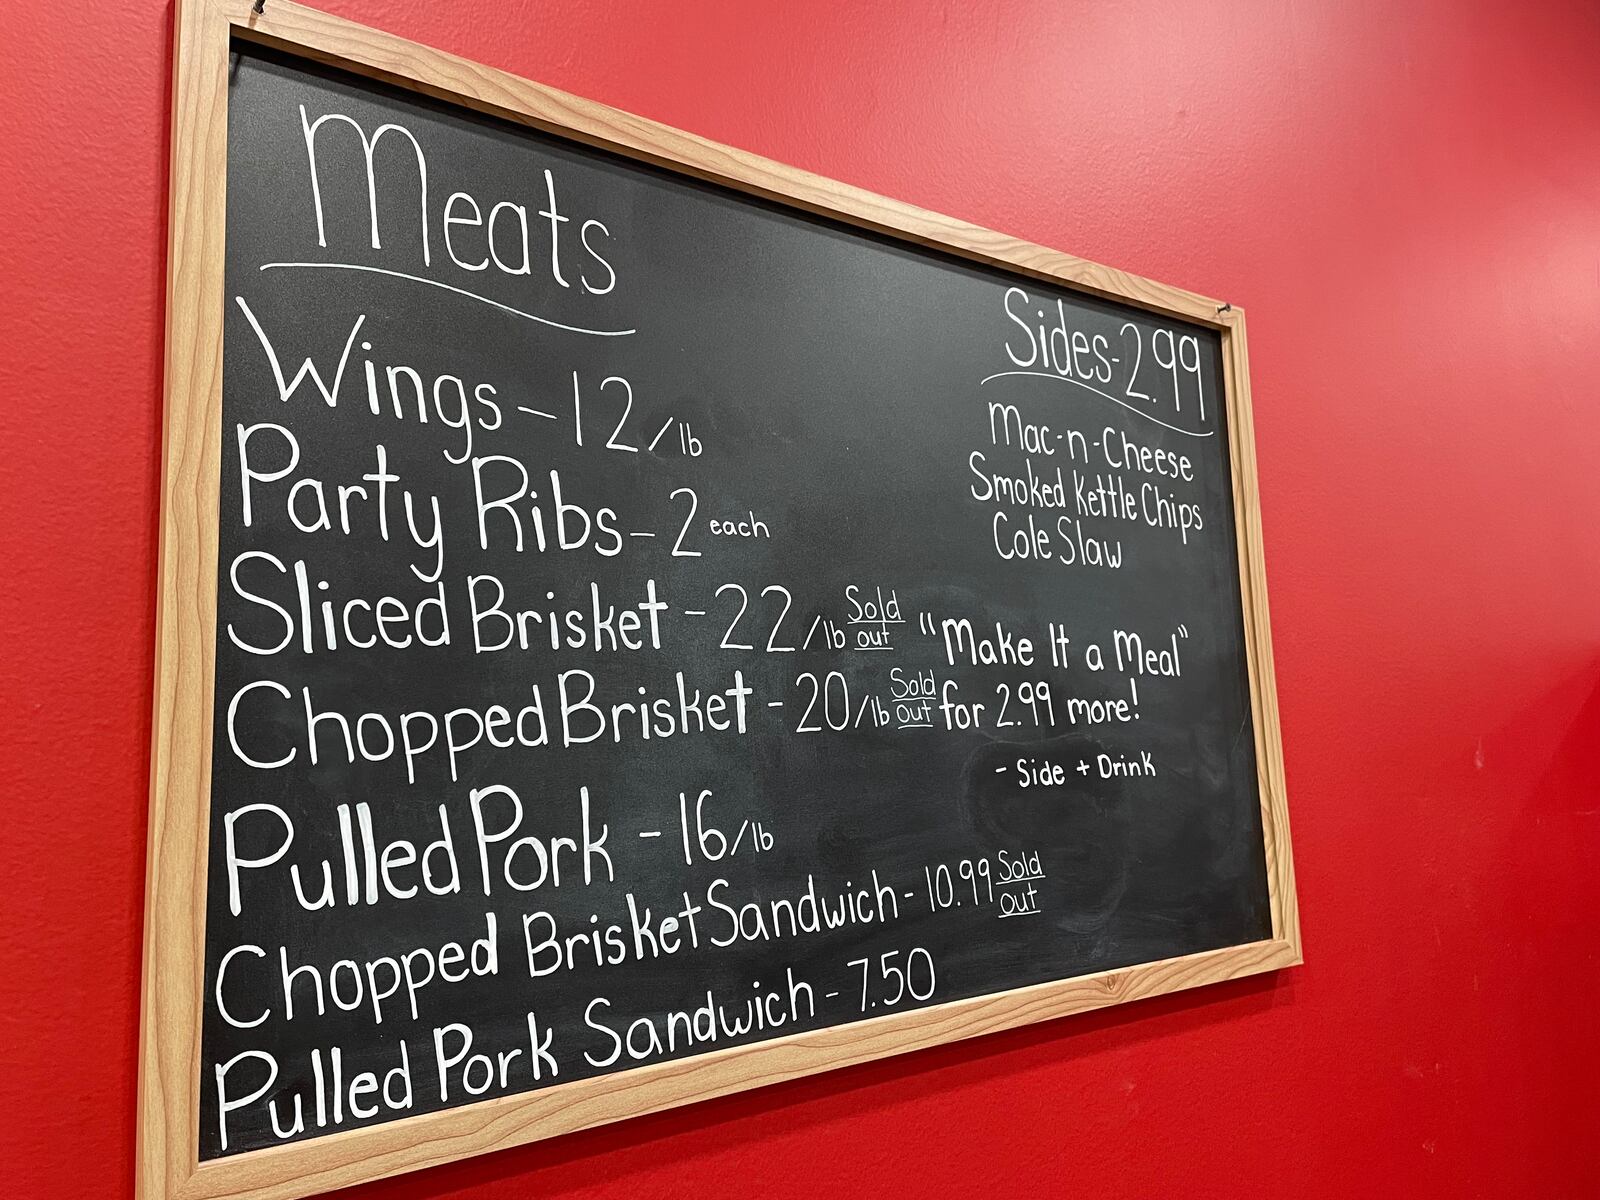 Meats
Wings - 12/lb
Party Ribs - 2 each
Sliced Brisket - 22/lb Sold out
Chopped Brisket - 20/lb Sold out
Pulled Pork - 16/lb
Chopped Brisket Sandwich - 10.99 Sold out
Pulled Pork Sandwich - 7.50
Sides - 2.99
Mac-n-Cheese
Smoked Kettle Chips
Cole Slaw
"Make It a Meal"
for 2.99 more!
- Side + Drink